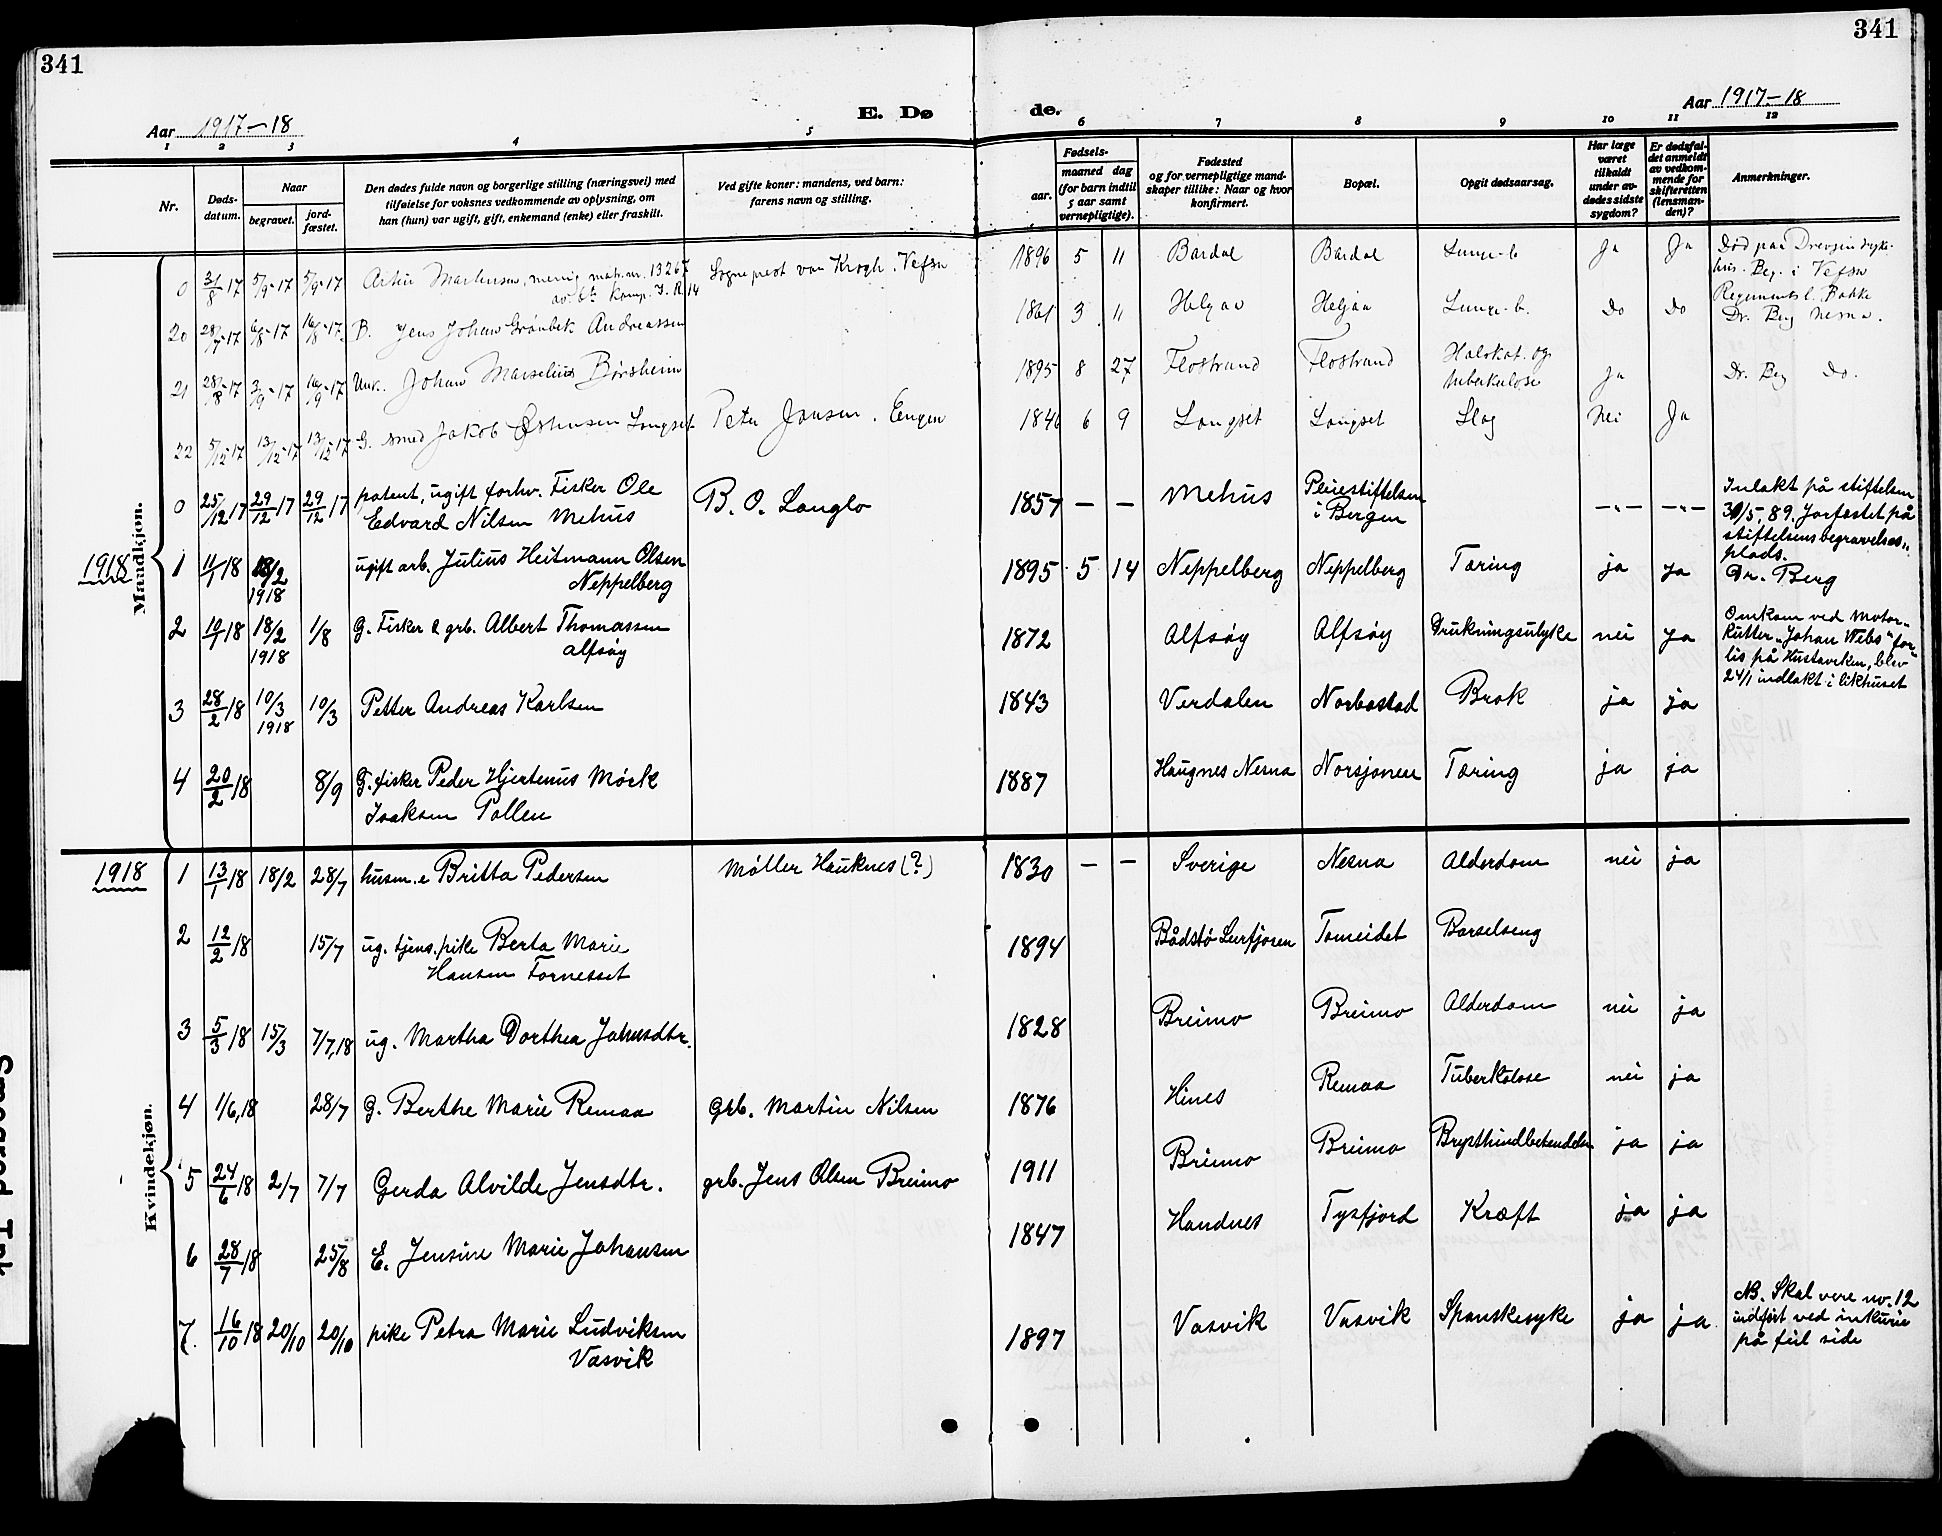 341
341
Aar 1917-18
E. Døde.
Aar 1917-18
1 2 3 4 5 6 7 8 9 10 11 12
Nr.
Døds-
datum.
Naar
begravet.
jord-
fæstet.
Den dødes fulde navn og borgerlige stilling (næringsvei) med
tilføielse for voksnes vedkommende av oplysning, om
han (hun) var ugift, gift, enkemand (enke) eller fraskilt.
Ved gifte koner: mandens, ved barn:
farens navn og stilling.
Fødsels-
aar.
maaned dag
(for barn indtil
5 aar samt
vernepligtige).
Fødested
og for vernepligtige mand-
skaper tillike: Naar og hvor
konfirmert.
Bopæl.
Opgit dødsaarsag.
Har læge
været
tilkaldt
under av-
dødes sidste
sygdom?
Er dødsfal-
det anmeldt
av vedkom-
mende for
skifteretten
(lensman-
den)?
Anmerkninger.
Mandkjøn.
0 31/8 17 5/9-17 5/9-17 menig matr.nr. 13267 Sogneprest von Krogh. Vefsn 1896 5 11 Bardal Bardal Lunge-b. Ja Ja
av 6te Komp. I. R. 14
Beg. i Vefsn
20 28/7-17 6/8-17 B. Jens Johan Grønbek Andreassen 1861 3 11 Helgaa Helgaa Lunge-b. Do Do
Dr. Berg Nesna.
21 28/8-17 3/9-17 16/9-17 Unk. Johan Marselius Børsheim 1895 8 27 Flostrand Flostrand Halskat. og
tuberkulose Ja Dr. Berg do.
22 5/12-17 13/12-17 13/12-17 G. smed Jakob Østensen Langset Peter Jansen. Engen 1846 6 9 Langset Langset Slag Nei Ja
0 25/12 17 29/12 17 29/12 17 patent, ugift forhv. Fisker Ole
Edvard Nilsen Mehus B. O. Langlo 1857 - - Mehus Pleiestiftelsen
i Bergen -"- -"- Inlakt på stiftelsen
Jorfæstet på
stiftelsens begravelses-
plads.
1918 1 11/1 18 18/2
1918 ugift arb. Julius Heitmann Olsen
Neppelberg 1895 5 14 Neppelberg Neppelberg Tæring ja ja Dr. Berg
2 10/1 18 18/2
1918 1/8 G. Fisker & grb. Albert Thomassen
Alfsøy 1872 Alfsøy Alfsøy Drukningsulyke nei ja Omkom ved motor-
kutter "Johan Webs" for-
lis på Hustaviken, blev
24/1 indlakt i likhuset
3 28/2 18 10/3
1918 10/3 Petter Andreas Karlsen 1843 Verdalen Norbostad Brok ja ja
4 20/2 18 8/9 G. fisker Peder Hjertenus Mörk
Isaksen Pollen 1887 Haugnes Nesna Norsjonen Tæring ja ja
1918
Kvindekjøn.
1 13/1 18 18/2 28/7 husm. e Britta Pedersen Møller Hauknes (?) 1830 - - Sverige Nesna Alderdom nei ja
2 12/2 18 15/7 ug. tjens. pike Berta Marie
Hansen Fornesset 1894 Bådstø Leirfjoren Tomeidet Barselseng
3 5/3 18 15/3 7/7,18 ug. Martha Dorthea Johnsdtr. 1828 Breimo Breimo Alderdom nei ja
4 1/6,18 28/7 G. Berthe Marie Remaa grb. Martin Nilsen 1876 Hines Remaa Tuberkolose nei ja
5 24/6 18 2/7 7/7 Gerda Alvilde Jensdtr. grb. Jens Olsen Breimo 1911 Breimo Breimo ja ja
6 28/7 18 25/8 E. Jensine Marie Johansen 1847 Handnes Tysfjord Kræft ja ja
7. 16/10 18 20/10 20/10 pike Petra Marie Ludviksen
Vasvik 1897 Vasvik Vasvik Spanskesyke ja ja NB. Skal være nr. 12
indført ved inkurie
på feil side